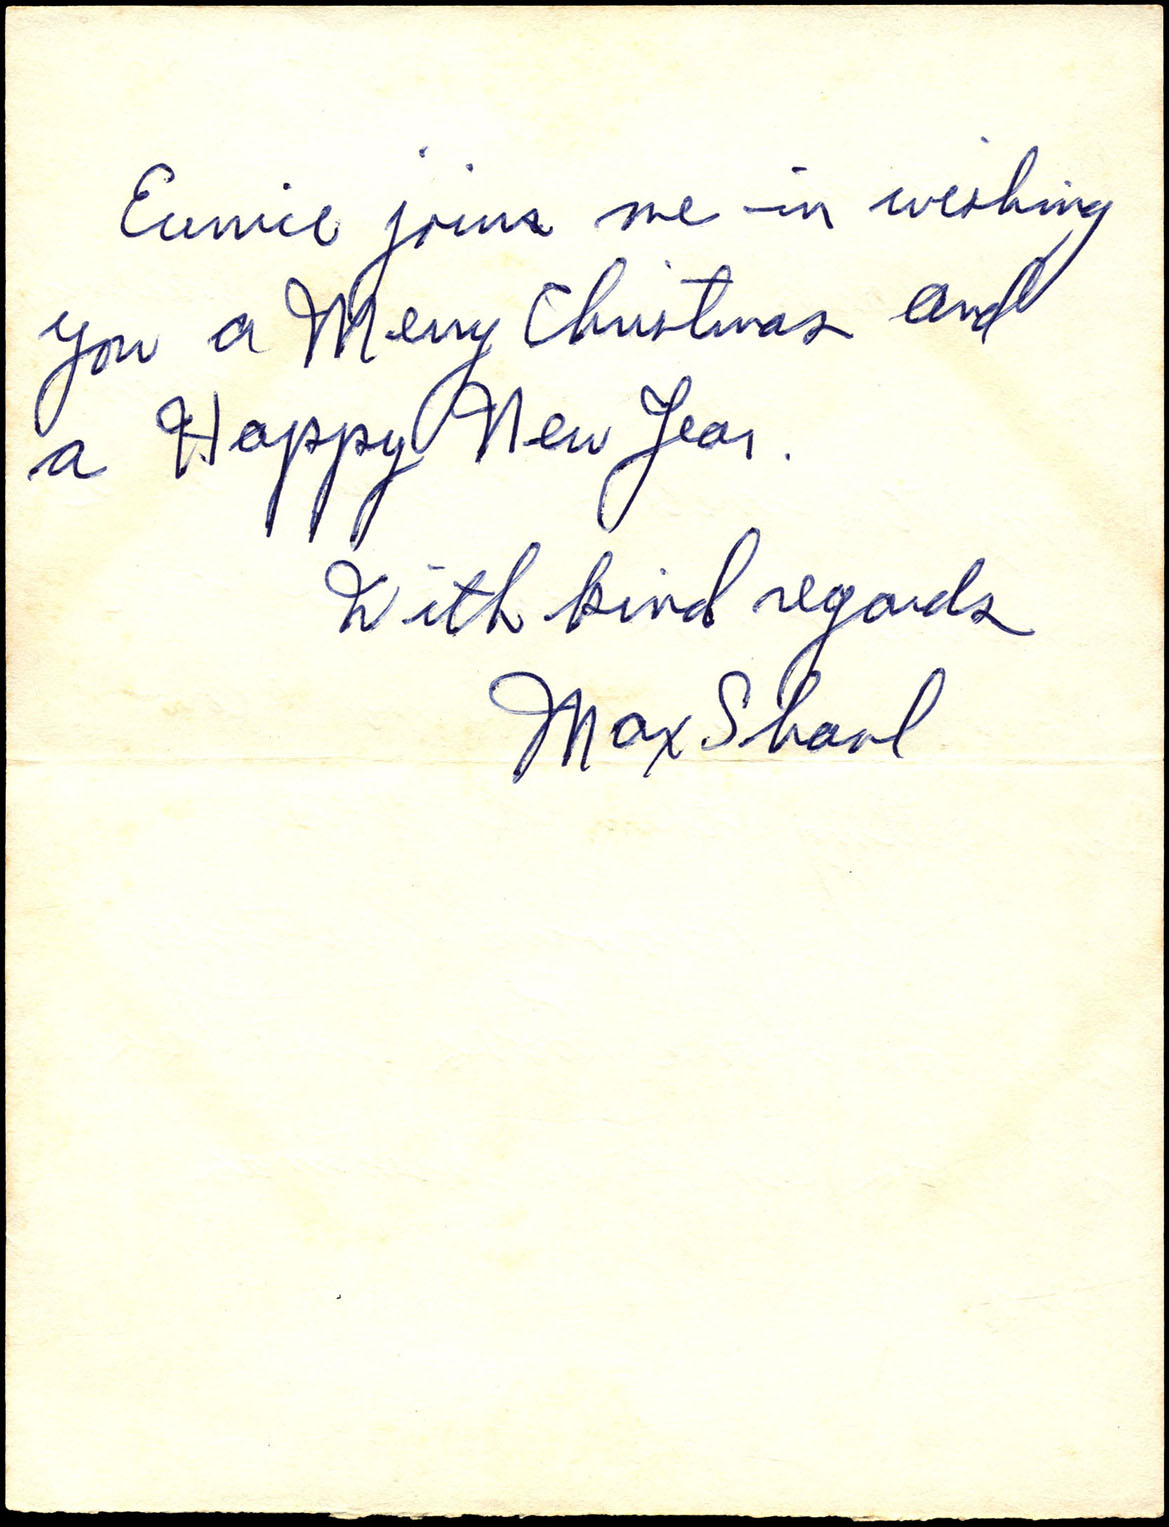 Eunice joins me in wishing
you a Merry Christmas and
a Happy New Year.
With kind regards
Max Sharl